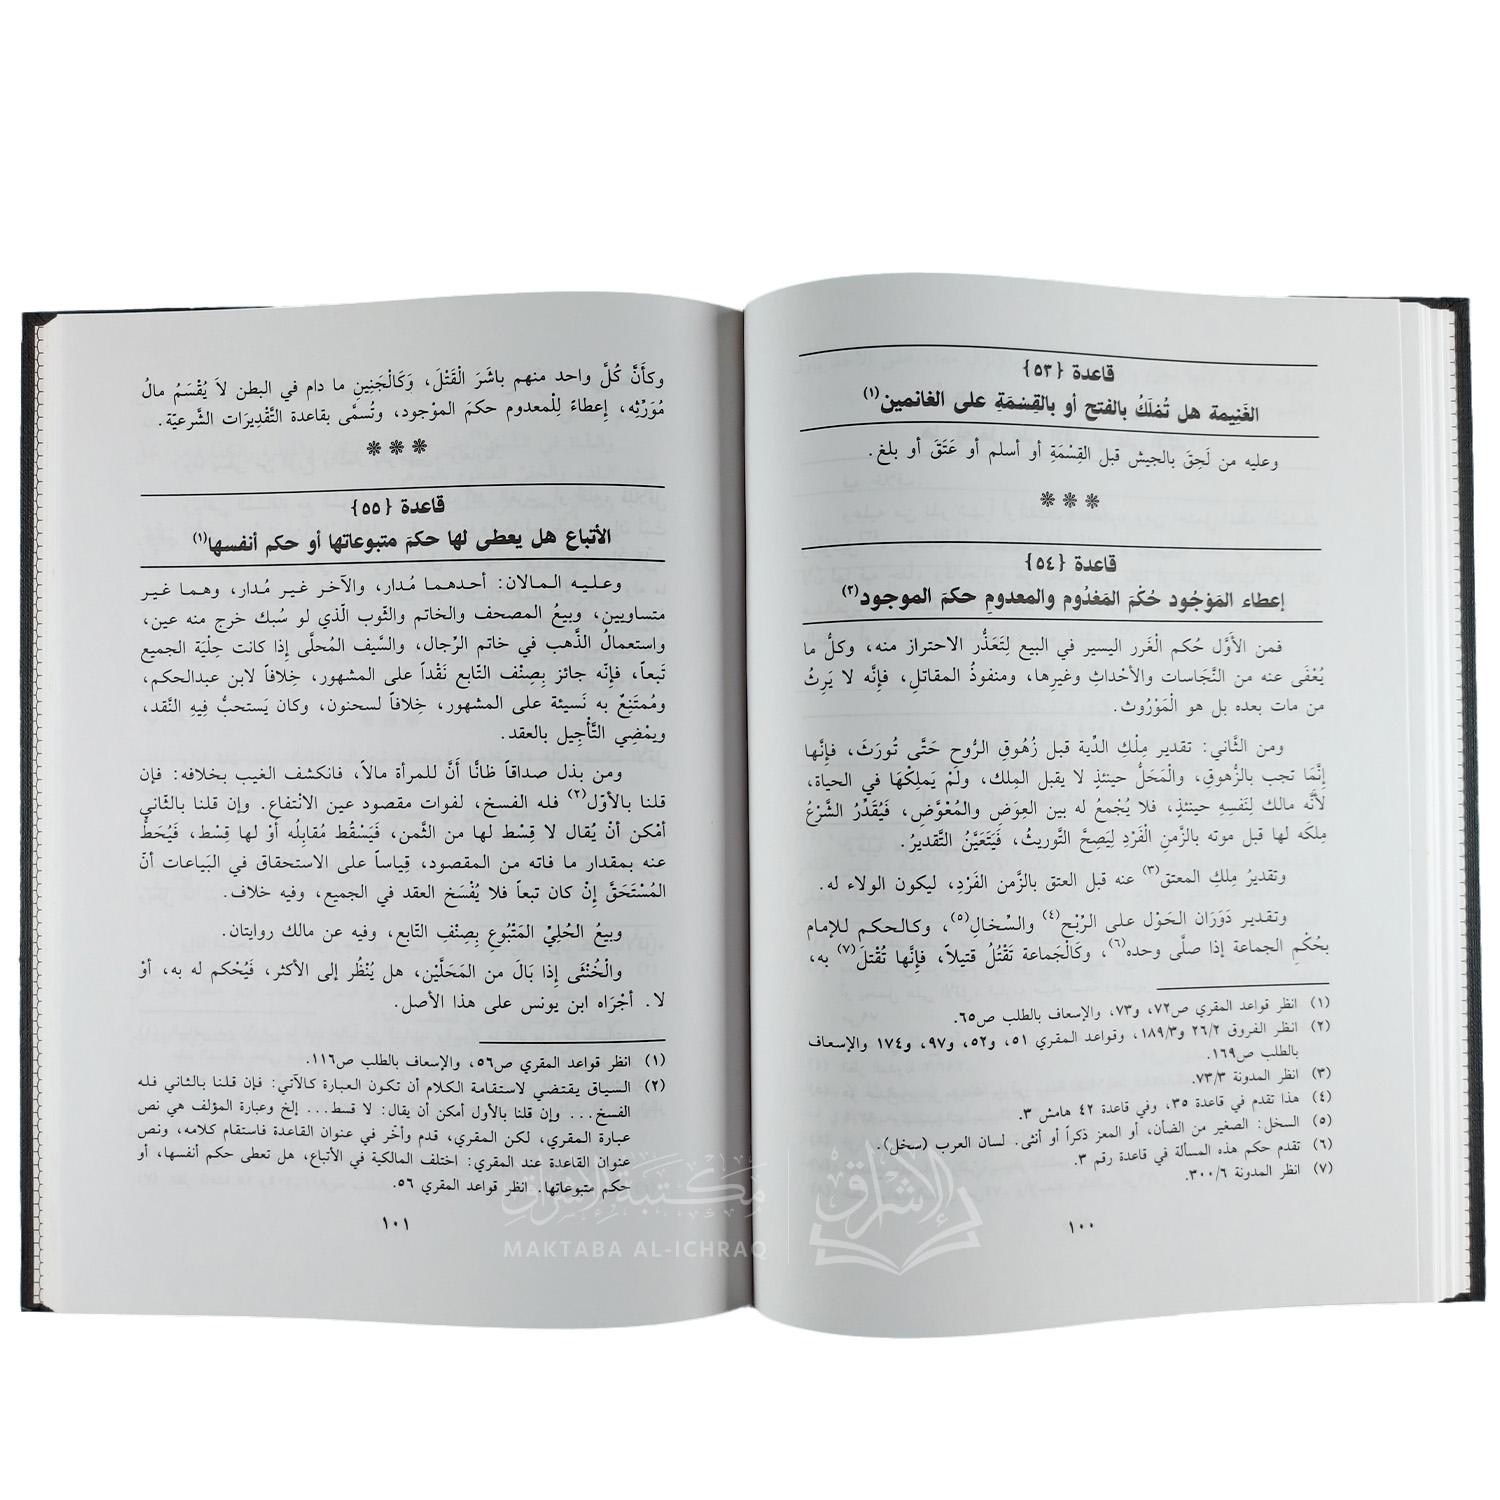 قاعدة {٥٣}
الغَنِيمة هل تُمْلَكُ بالفتح أو بالقِسْمَةِ على الغانمين(١)
وعليه من لَحِقَ بالجيش قبل القِسْمَةِ أو أسلم أو عَتَقَ أو بلغ.
❊ ❊ ❊
قاعدة {٥٤}
إعطاء المَوْجُود حُكْمَ المَعْدُوم والمعدومِ حكمَ الموجود(٢)
فمن الأَوَّل حُكم الْغَرر اليسير في البيع لِتَعَذُّر الاحتراز منه، وكلُّ ما
يُعْفَى عنه من النَّجَاسات والأحْداثِ وغيرِها، ومنفوذُ المقاتلِ، فإنَّه لا يَرِثُ
من مات بعده بل هو الْمَوْرُوث.
ومن الثَّاني: تقدير مِلْكِ الدِّية قبل زُهُوقِ الرُّوحِ حَتَّى تُورَثَ، فإنَّها
إنَّمَا تجب بالزُّهوقِ، والْمَحَلُّ حينئذٍ لا يقبل المِلك، ولَمْ يَملِكْهَا في الحياة،
لأنَّه مالك لِنَفسِهِ حينئذٍ، فلا يُجْمعُ له بين العِوَضِ والمُعْوَّضِ، فَيُقَدِّرُ الشَّرْعُ
مِلكَه لها قبل موته بالزَّمنِ الْفَرْدِ لِيَصِحَّ التَّوريثُ، فَيَتَعَيَّنُ التَّقديرُ.
وتقديرُ مِلكِ المعتق(٣) عنه قبل العتق بالزَّمن الفَرْدِ، ليكون الولاء له.
وتقدير دَوَرَان الحَوْل على الرِّبْحِ(٤) والسِّخالِ(٥)، وكالحكم للإمام
بحُكْمِ الجماعة إذا صلَّى وحده(٦)، وكَالْجَماعة تَقْتُلُ قتيلاً، فإنَّها تُقْتلَ(٧) به،
(١) انظر قواعد المقري ص٧٢، و٧٣، والإسعاف بالطلب ص٦٥.
(٢) انظر الفروق ٢٦/٢ و١٨٩/٣، وقواعد المقري ٥١، و٥٢، و٩٧، و١٧٤ والإسعاف
بالطلب ص١٦٩.
(٣) انظر المدونة ٧٣/٣.
(٤) هذا تقدم في قاعدة ٣٥، وفي قاعدة ٤٢ هامش ٣.
(٥) السخل: الصغير من الضأن، أو المعز ذكراً أو أنثى. لسان العرب (سخل).
(٦) تقدم حكم هذه المسألة في قاعدة رقم ٣.
(٧) انظر المدونة ٣٠٠/٦.
١٠٠
وكأَنَّ كُلَّ واحد منهم باشَرَ الْقَتْلَ، وَكَالْجَنِينِ ما دام في البطن لاَ يُقْسَمُ مالُ
مُوَرِّثِه، إعطاءً لِلْمعدوم حكمَ الموْجود، وتُسمَّى بقاعدة التَّقْدِيرَات الشَّرعيّة.
❊ ❊ ❊
قاعدة {٥٥}
الأتباع هل يعطى لها حكمَ متبوعاتها أو حكم أنفسها(١)
وعليه المالان: أحدهما مُدار، والآخر غير مُدار، وهما غير
متساويين، وبيعُ المصحف والخاتم والثَّوب الَّذي لو سُبك خرج منه عين،
واستعمالُ الذَّهب في خاتم الرِّجال، والسَّيف المُحلَّى إذا كانت حِلْيَة الجميع
تَبعاً، فإنّه جائز بِصِنْف التَّابع نَقْداً على المشهور، خِلافاً لابن عبدالحكم،
ومُمتَنِعٌ به نَسيئة على المشهور، خِلافاً لسحنون، وكان يَستحبُّ فِيهِ النَّقد،
ويمْضِي التَّأْجِيل بالعقد.
ومن بذل صداقاً ظانًّا أَنَّ للمرأة مالاً، فانكشف الغيب بخلافه: فإن
قلنا بالأوّل(٢) فله الفسخ، لفوات مقصود عين الانْتفاع. وإن قلنا بالثَّاني
أمْكن أنْ يُقال لا قِسْط لها من الثَّمن، فَيَسْقُط مُقابِلُه أوْ لها قِسْط، فَيُحَطُّ
عنه بمقدار ما فاته من المقصود، قِياساً على الاستحقاق في البَياعات أنّ
المُسْتَحَقَّ إنْ كان تبعاً فلا يُفْسَخ العقد في الجميع، وفيه خلاف.
وبيعُ الحُلِيِّ المَتْبُوعِ بِصِنْفِ التّابع، وفيه عن مالك روايتان.
والْخُنْثَى إذا بَالَ من المَحَلَّيْن، هل يُنْظُر إلى الأكثر، فَيُحْكم له به، أوْ
لا. أجْرَاه ابن يونس على هذا الأصل.
(١) انظر قواعد المقري ص٥٦، والإسعاف بالطلب ص١١٦.
(٢) السياق يقتضي لاستقامة الكلام أن تكون العبارة كالآتي: فإن قلنا بالثاني فله
الفسخ... وإن قلنا بالأول أمكن أن يقال: لا قسط... إلخ وعبارة المؤلف هي نص
عبارة المقري، لكن المقري، قدم وأخر في عنوان القاعدة فاستقام كلامه، ونص
عنوان القاعدة عند المقري: اختلف المالكية في الأتباع، هل تعطى حكم أنفسها، أو
حكم متبوعاتها. انظر قواعد المقري ٥٦.
١٠١
مكتبة الإشراق
MAKTABA AL-ICHRAQ
الإشراق